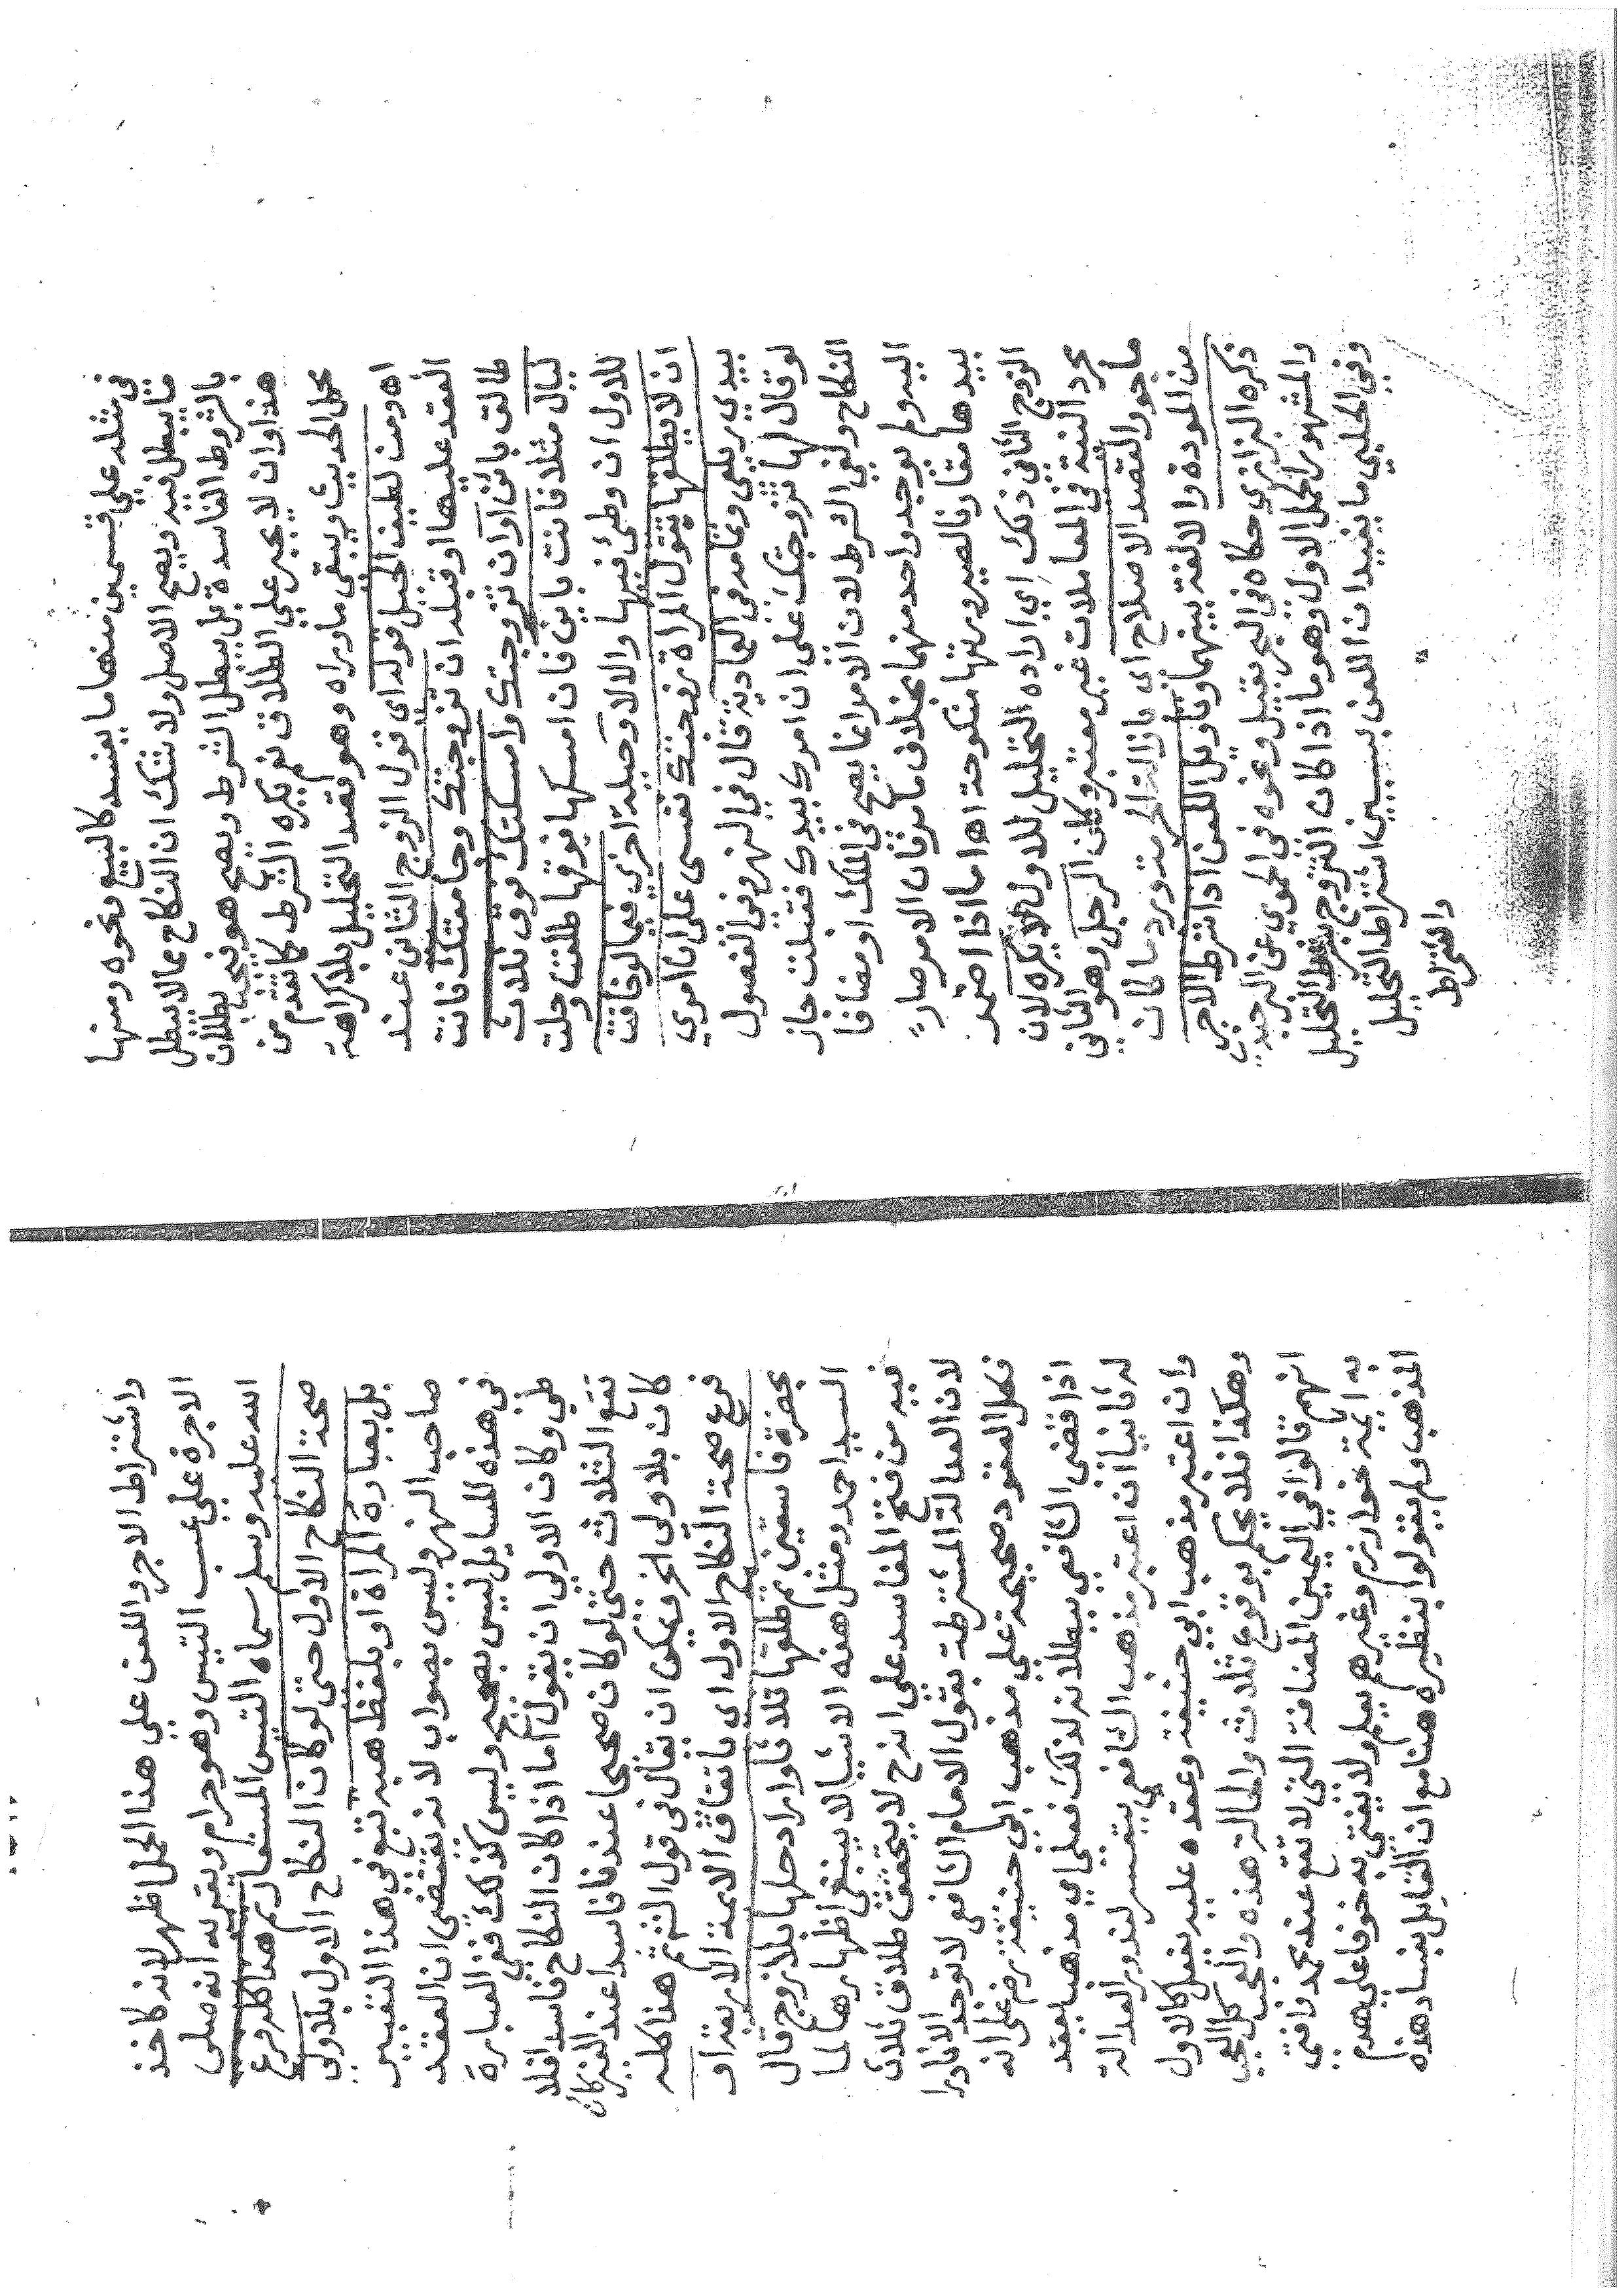 في مثله علي قسمين منها ما يفسد كالبيع ونحوه ومنها
ما يبطل فيه ويصح الاصل ولا شك ان النكاح مما لا يبطل
بالشروط الفاسدة بل يبطل الشرط ويصح هو فيجب بطلان
هذا وان لا يجبر علي الطلاق نعم يكره الشرط كما تقدم من
محمل الحديث ويبقي ما وراه وهو قصد التحليل بلا كراهة
اه ومن لطيف الحيل قوله اي قول الزوج الثاني عند
العقد عليها او قبله ان تزوجتك وجامعتك فانت
طالق بائن او ان تزوجتك وامسكتك فوق ثلاث
ليال مثلا فانت باين فان امسكها فوقها طلقت وحلت
للاول ان وطئ فيها والا لا وحيلة اخري فيما لو خافت
ان لا يطلقها تقول المراة زوجتك نفسي علي ان امري
بيدي زيلعي وتمامه في العمادية قال في النهر وفي الفصول
لو قال لها تزوجتك علي ان امرك بيدك فقبلت جاز
النكاح ولغي الشرط لان الامر انما يصح في الملك او مضافا
اليه ولم يوجد واحد منهما بخلاف ما مر فان الامر صار
بيدها مقارنا لصيرورتها منكوحة اه اما اذا اضمر
الزوج الثاني ذلك اي اراده التحليل للاول لا يكره لان
مجرد النية في المعاملات غير معتبر وكان الرجل وهو الثاني
ماجورا لقصد الاصلاح اي بازالة ما كان
من المودة والالفة بينهما وتاويل اللعن اذا شرط الاجر
ذكره البزازي حكاه في البحر بقيل ونحوه في الحموي عن البرجندي
والمشهور الحمل الاول وهو ما اذا كان التزوج بشرط التحليل
وفي الحلبي ما يفيد ان اللعن بسببين اشتراط التحليل
واشتراط
واشتراط الاجر واللعن علي هذا الحمل اظهر لانه كاخذ
الاجرة علي عسب التيس وهو حرام ويقربه انه صلي
الله عليه وسلم سماه التيس المستعار ثم هذا كله فرع
صحة النكاح الاول حتي لو كان النكاح الاول بلا ولي
بل بعبارة المراة او بلفظ هبة تبع في هذا التعبير
صاحب النهر وليس بصواب لانه يقتضي ان العقد
في هذه المسايل ليس بصحيح وليس كذلك ففي العبارة
طي وكان الاولي ان يقول اما اذا كان النكاح فاسدا فلا
تقع الثلاث حتي لو كان صحيحا عندنا فاسدا عند الغير كان
كان بلا ولي الخ ويمكن ان يقال في قول الش ثم هذا كله
فرع صحة النكاح الاول اي باتفاق الايمة الاربعة او
بحضرة فاسقين ثم طلقها ثلاثا واراد حلها بلا زوج قال
السيد احمد ومثل هذه الاشيا لا ينبغي اظهارها لما
فيه من فتح المفاسد علي انه ح لا يتحقق طلاق ثلاث
لان العدالة المشترطة بقول الامام الشافعي لا توجد الا نادرا
فكل العقود صحيحة علي مذهب ابي حنيفة زم علي انه
اذا قضي الشافعي ببطلانه لذلك فعلي اي مذهب يعقد
له ثانيا ان اعتبر مذهب الشافعي يتعسر لندور العدالة
وان اعتبر مذهب ابي حنيفة وعقده عليه نقل كالاول
وهكذا فلا يحكم بوقوع ثلاث والحالة هذه والعجب كل العجب
انهم قالوا في اليمين المضافة التي لا تقع عند محمد وافتي
به ايمة خوارزم وغيرهم يعلم ولا يفتي به خوفا علي هدم
المذهب ولم يقولوا بنظيره هنا مع ان القايل بفساد هذه